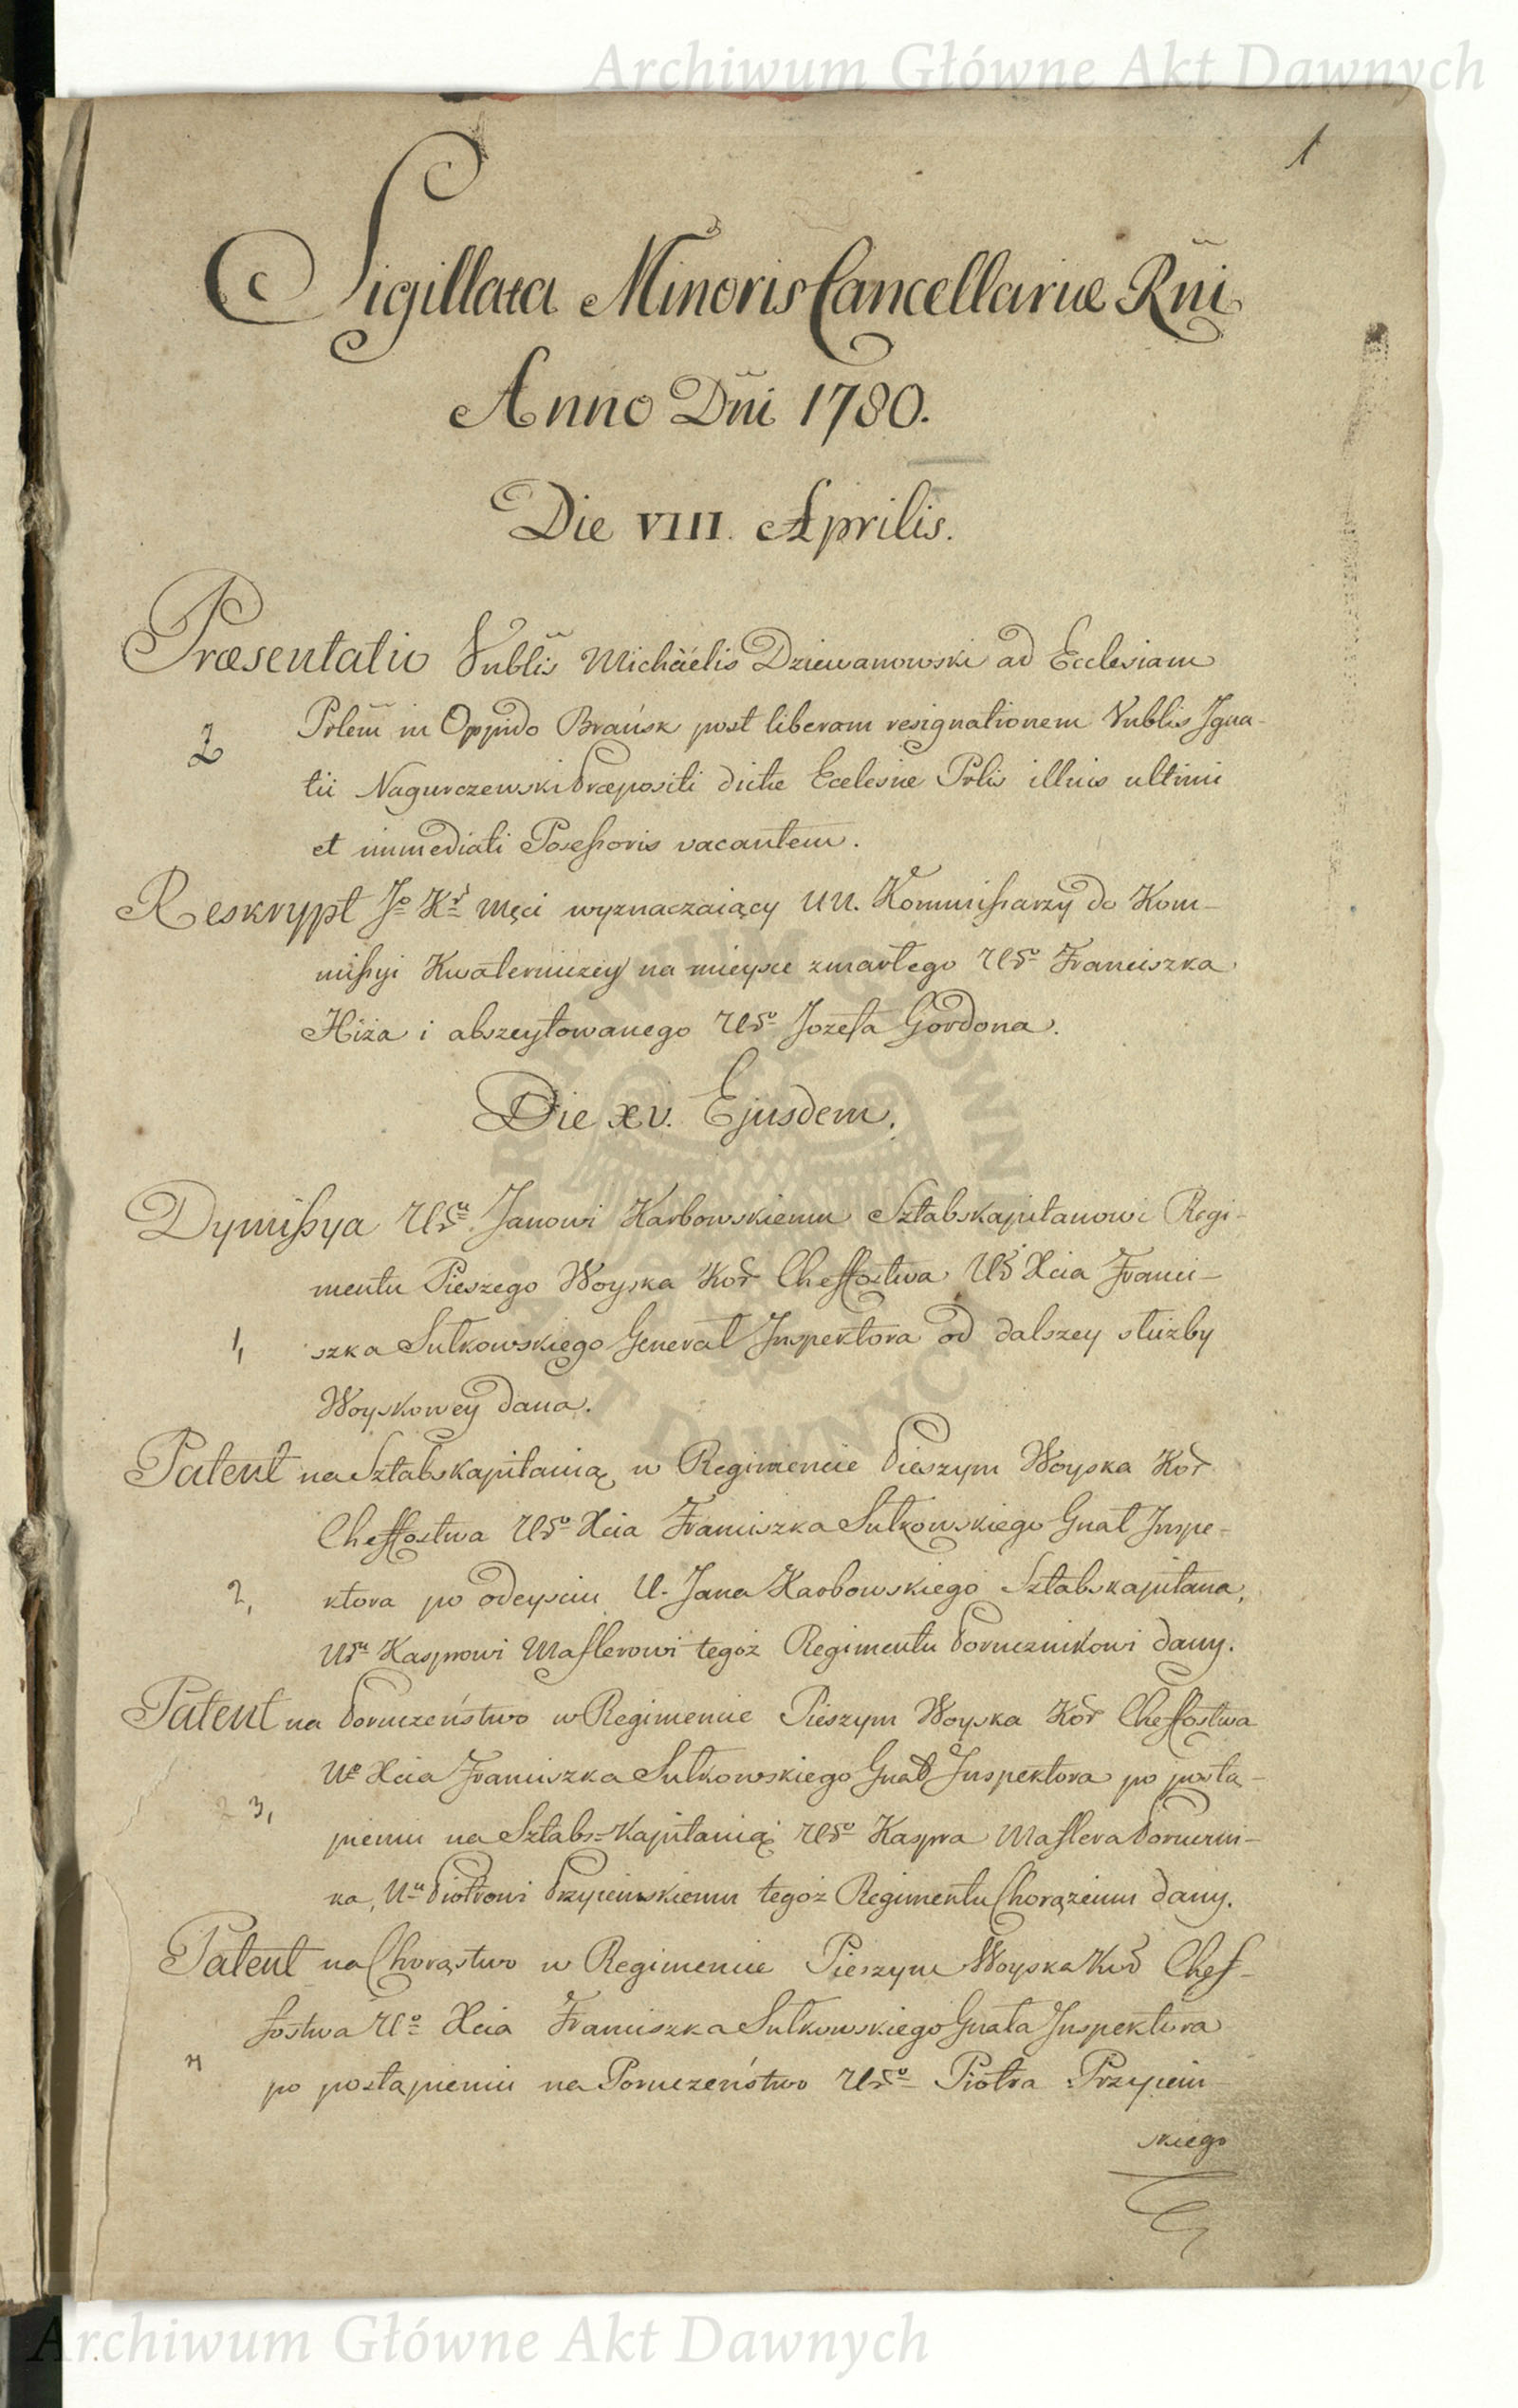 Archiwum Główne Akt Dawnych
1
Sigillata Minoris Cancellariæ Rñi
Anno Dñi 1780.
Die VIII. Aprilis.
Præsentatio Vnblis Michaelis Dziewanowski ad Ecclesiam
Prlem in Oppido Brańsk post liberam resignationem Vnblis Igna-
2
tii Nagurczewski Præpositi dictæ Ecclesiæ Prlis illius ultimi
et immediati Possessoris vacantem.
Reskrypt Jº Kr Mci wyznaczaiący UU. Kommissarzy do Kom-
missyi Kwaterniczey na mieysce zmarłego Urº Franciszka
Hiża i abszeytowanego Urº Jozefa Gordona.
Die XV. Ejusdem.
Dymissya Urᵘ Janowi Karbowskiemu Sztabskapitanowi Regi-
mentu Pieszego Woyska Kor Cheffostwa Ur Xcia Franci-
1, szka Sułkowskiego Generał Inspektora od dalszey służby
Woyskowey dana.
Patent na Sztabskapitanią w Regimencie Pieszym Woyska Kor
Cheffostwa Urº Xcia Franciszka Sułkowskiego Gnał Inspe-
2, ktora po odeysciu U. Jana Karbowskiego Sztabskapitana,
Urᵘ Kasprowi Maflerowi tegoż Regimentu Porucznikowi dany.
Patent na Poruczeństwo w Regimencie Pieszym Woyska Kor Cheffostwa
Uº Xcia Franciszka Sułkowskiego Gnał Inspektora po postą-
3, pieniu na Sztabs=Kapitanią Urº Kaspra Maflera Poruczni-
ka, Uᵘ Piotrowi Przyciemskiemu tegoż Regimentu Chorążemu dany.
Patent na Chorąstwo w Regimencie Pieszym Woyska Kor Chef-
fostwa Uº Xcia Franciszka Sułkowskiego Gnała Inspektora
4 po postąpieniu na Poruczeństwo Urº Piotra Przyciem-
skiego
Archiwum Główne Akt Dawnych